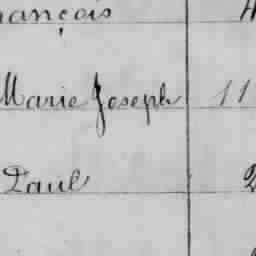 ançois
Marie Joseph 11
Paul 2